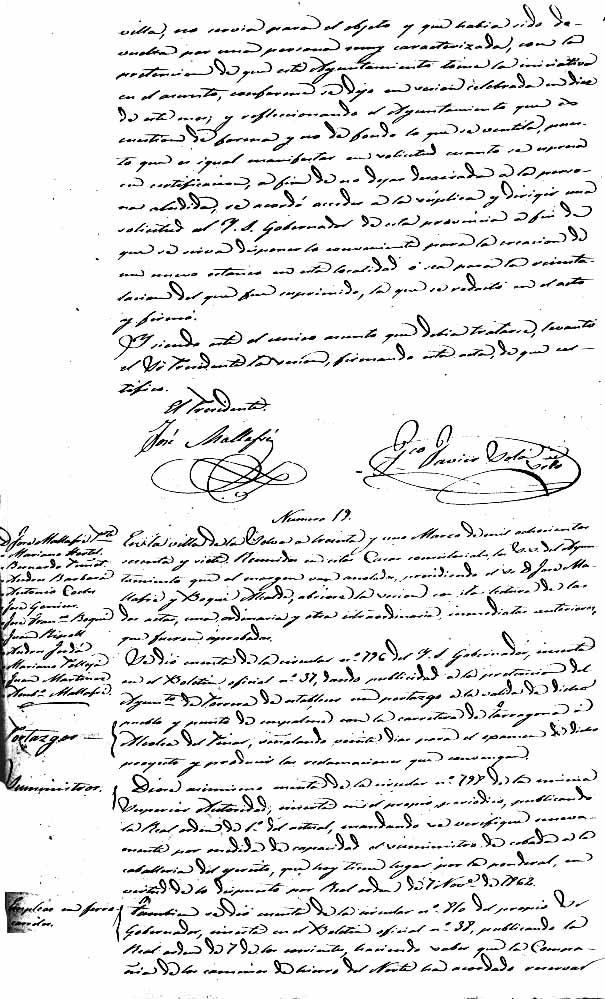 villa, no servia para el objeto y que habia sido de-
vuelta por una persona muy caracterizada, con la
pretencion de que este Ayuntamiento tome la iniciativa
en el asunto, conforme se dijo en sesion celebrada en diez
de este mes; y reflecsionando el Ayuntamiento que es
cuestion de forma y no de fondo lo que se ventila, pues-
to que es igual manifestar en solicitud cuanto se espresa
en certificacion, a fin de no dejar desairada a la perso-
na aludida, se acordó acceder a la súplica y dirigir una
solicitud al Y. S. Gobernador de esta provincia a fin de
que se sirva disponer lo conveniente para la creacion de
un nuevo estanco en esta localidad ó sea para la
del que fue suprimido, la que se redactó en el acto
y firmó.
Y siendo este el unico asunto que debia tratarse, levantó
el Sr Presidente la sesion, firmando este acta, de que cer-
tifico.
El Presidente
José Mallafré
Fco Javier Solá
Srio
Numero 19.
D. José Mallafré Pte
Mariano
Bernardo
Andres Barbará
Antonio
José
José Franco Boqué
Juan Ripoll
Andres Jordá
Mariano
Juan Martinez
Mallafré
En la villa de la Selva a treinta y uno Marzo de mil ochocientos
sesenta y siete. Reunidos en estas Casas consistoriales los SS. del Ayun-
tamiento que al margen van anotados, presidiendo el Sr D. José Ma-
llafré y Boqué Alcalde, abierta la sesion con la lectura de las
dos actas, una ordinaria y otra estraordinaria, inmediatas anteriores,
que fueron aprobadas.
Portazgos
Se dió cuenta de la circular nº 796 del Y. S. Gobernador, inserta
en el Boletin oficial nº 37, dando publicidad a la pretencion del
Ayunto de de establecer un portazgo a la salida de dicho
pueblo y punto de empalme con la carretera de Tarragona á
Alcolea del Pinar, señalando veinte dias para el examen de dicho
proyecto y producir las reclamaciones que convengan.
Suministros.
Diose asimismo cuenta de la circular nº 797 de la misma
Superior Autoridad, inserta en el propio periodico, publicando
la Real orden de 1º del actual, mandando se verifique nueva-
mente por medida de capacidad el suministro de cebada a la
caballeria del ejercito, que hoy tiene lugar por la ponderal, en
virtud de lo dispuesto por Real orden de 7 Nove de 1862.
Empleos en ferro
carriles.
Tambien se dió cuenta de la circular nº 810 del propio Sr
Gobernador, inserta en el Boletin oficial nº 38, publicando la
Real orden de 7 de los corrientes, haciendo saber que la Compa-
ñia de los caminos de hierro del Norte ha acordado reservar